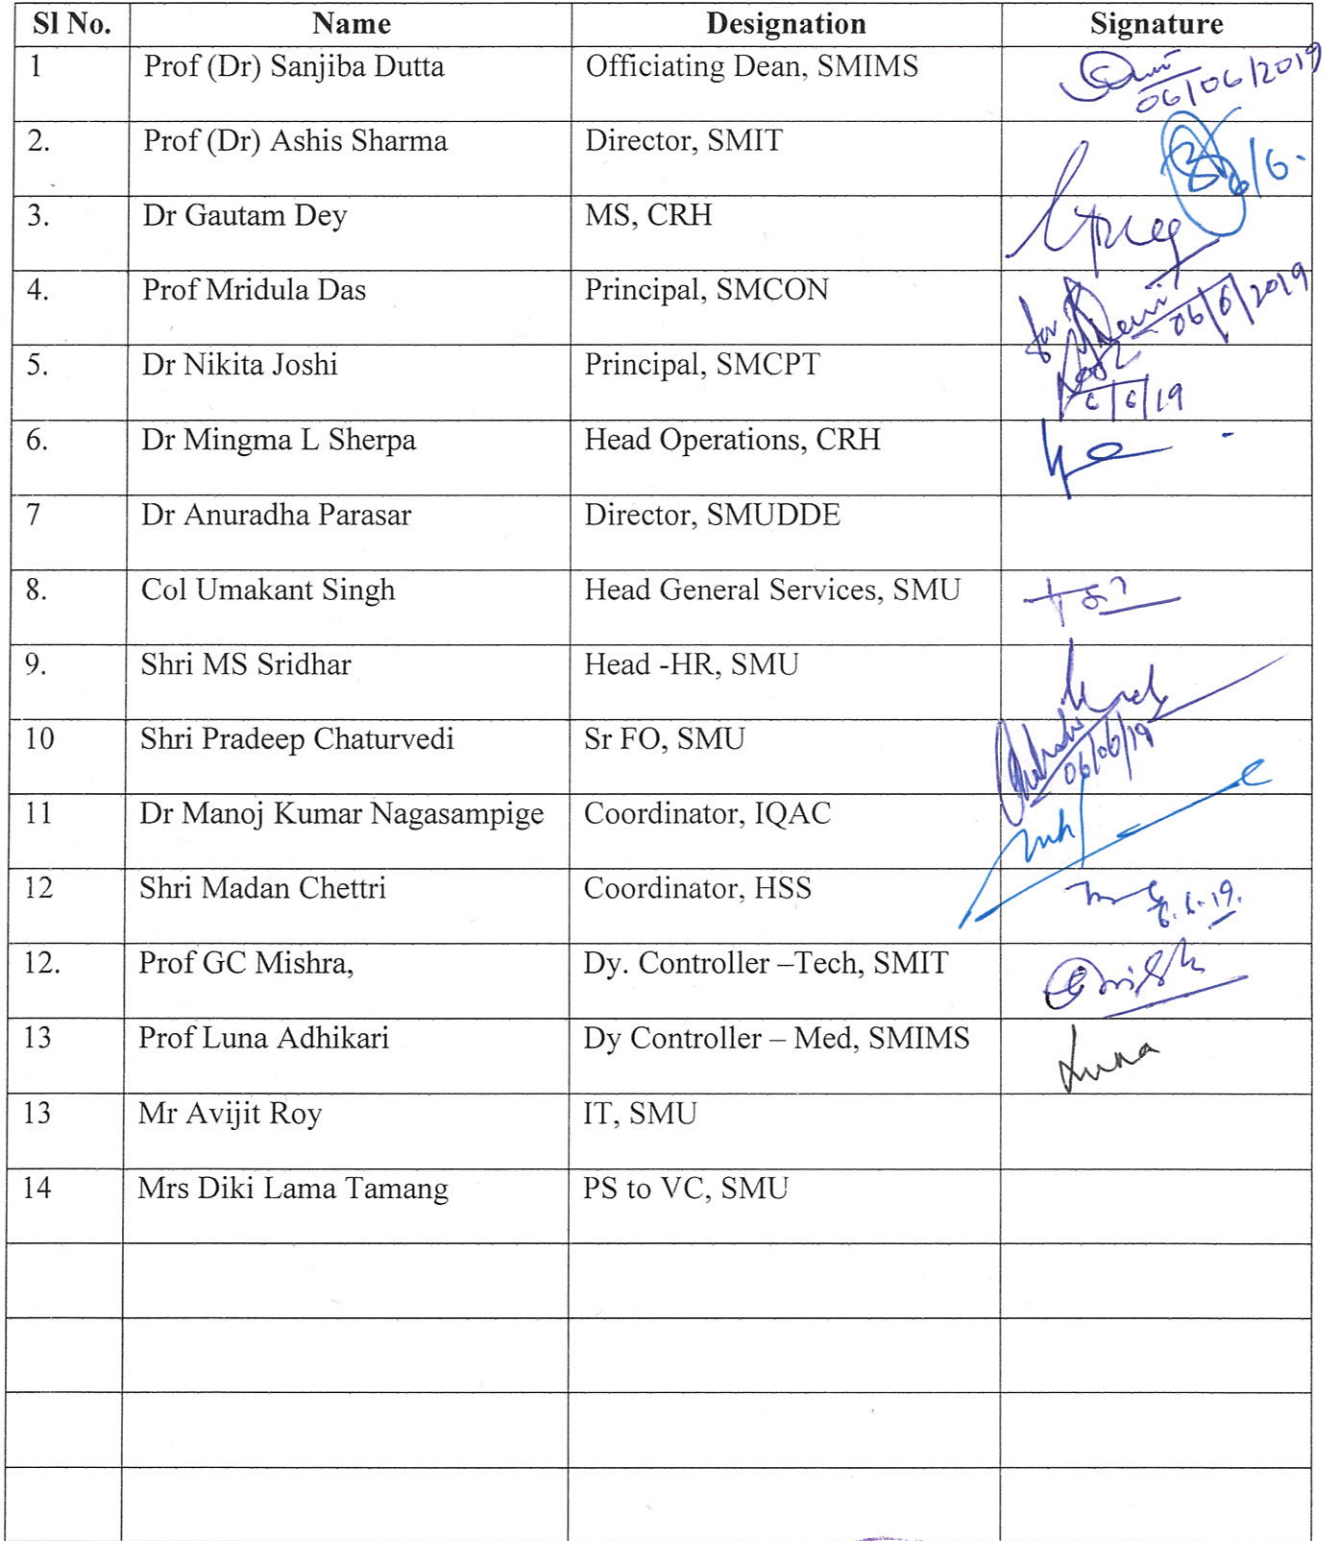 Sl No. Name Designation Signature
1 Prof (Dr) Sanjiba Dutta Officiating Dean, SMIMS
06/06/2019
2. Prof (Dr) Ashis Sharma Director, SMIT
3. Dr Gautam Dey MS, CRH
4. Prof Mridula Das Principal, SMCON for 06/6/2019
5. Dr Nikita Joshi Principal, SMCPT
6/6/19
6. Dr Mingma L Sherpa Head Operations, CRH
7 Dr Anuradha Parasar Director, SMUDDE
8. Col Umakant Singh Head General Services, SMU
9. Shri MS Sridhar Head -HR, SMU
10 Shri Pradeep Chaturvedi Sr FO, SMU
06/06/19
11 Dr Manoj Kumar Nagasampige Coordinator, IQAC
12 Shri Madan Chettri Coordinator, HSS 6.6.19.
12. Prof GC Mishra, Dy. Controller –Tech, SMIT
13 Prof Luna Adhikari Dy Controller – Med, SMIMS Luna
13 Mr Avijit Roy IT, SMU
14 Mrs Diki Lama Tamang PS to VC, SMU